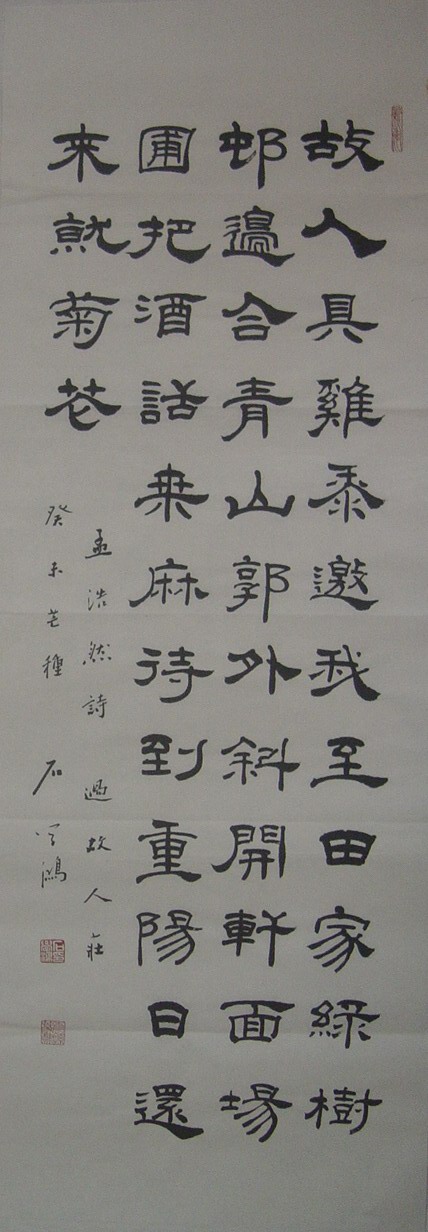 故人具雞黍邀我至田家綠樹
邨邊合青山郭外斜開軒面場
圃把酒話桑麻待到重陽日還
來就菊花
孟浩然詩 過故人莊
癸未芒種 石鴻